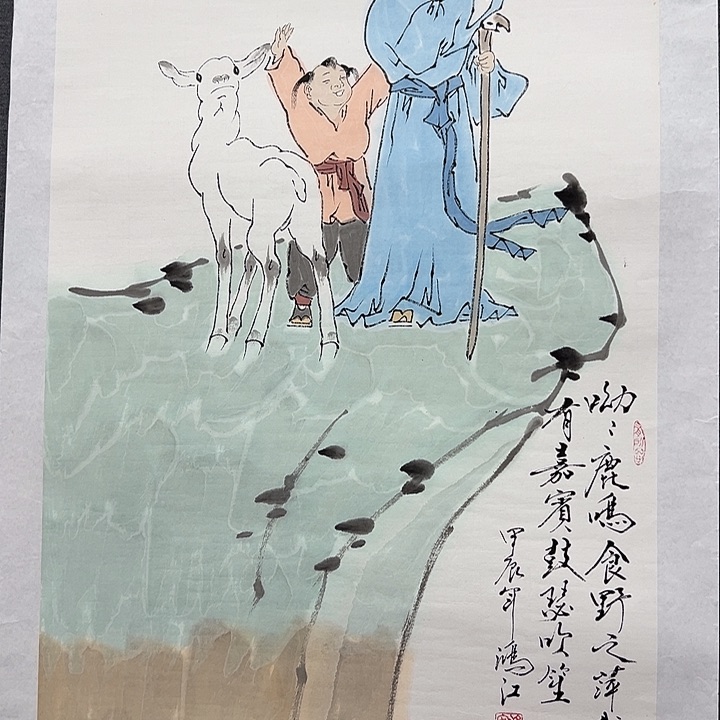 呦〻鹿鳴食野之苹
有嘉賓鼓瑟吹笙
甲辰年鴻江